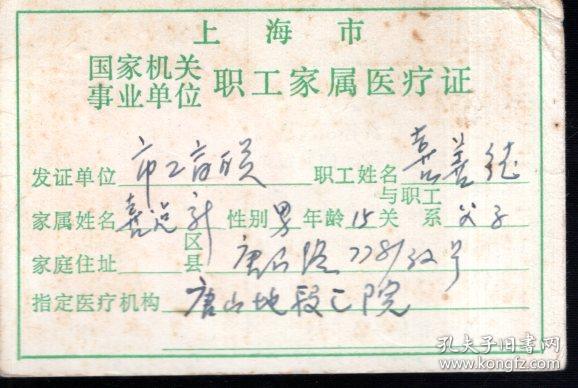 上海市
国家机关
事业单位 职工家属医疗证
发证单位 市工商联 职工姓名 嘉善德
家属姓名 嘉 新 性别 男 年龄 15 与职工关系 父子
家庭住址 区县 唐山路778/32号
指定医疗机构 唐山地段医院
孔夫子旧书网
book.kongfz.com